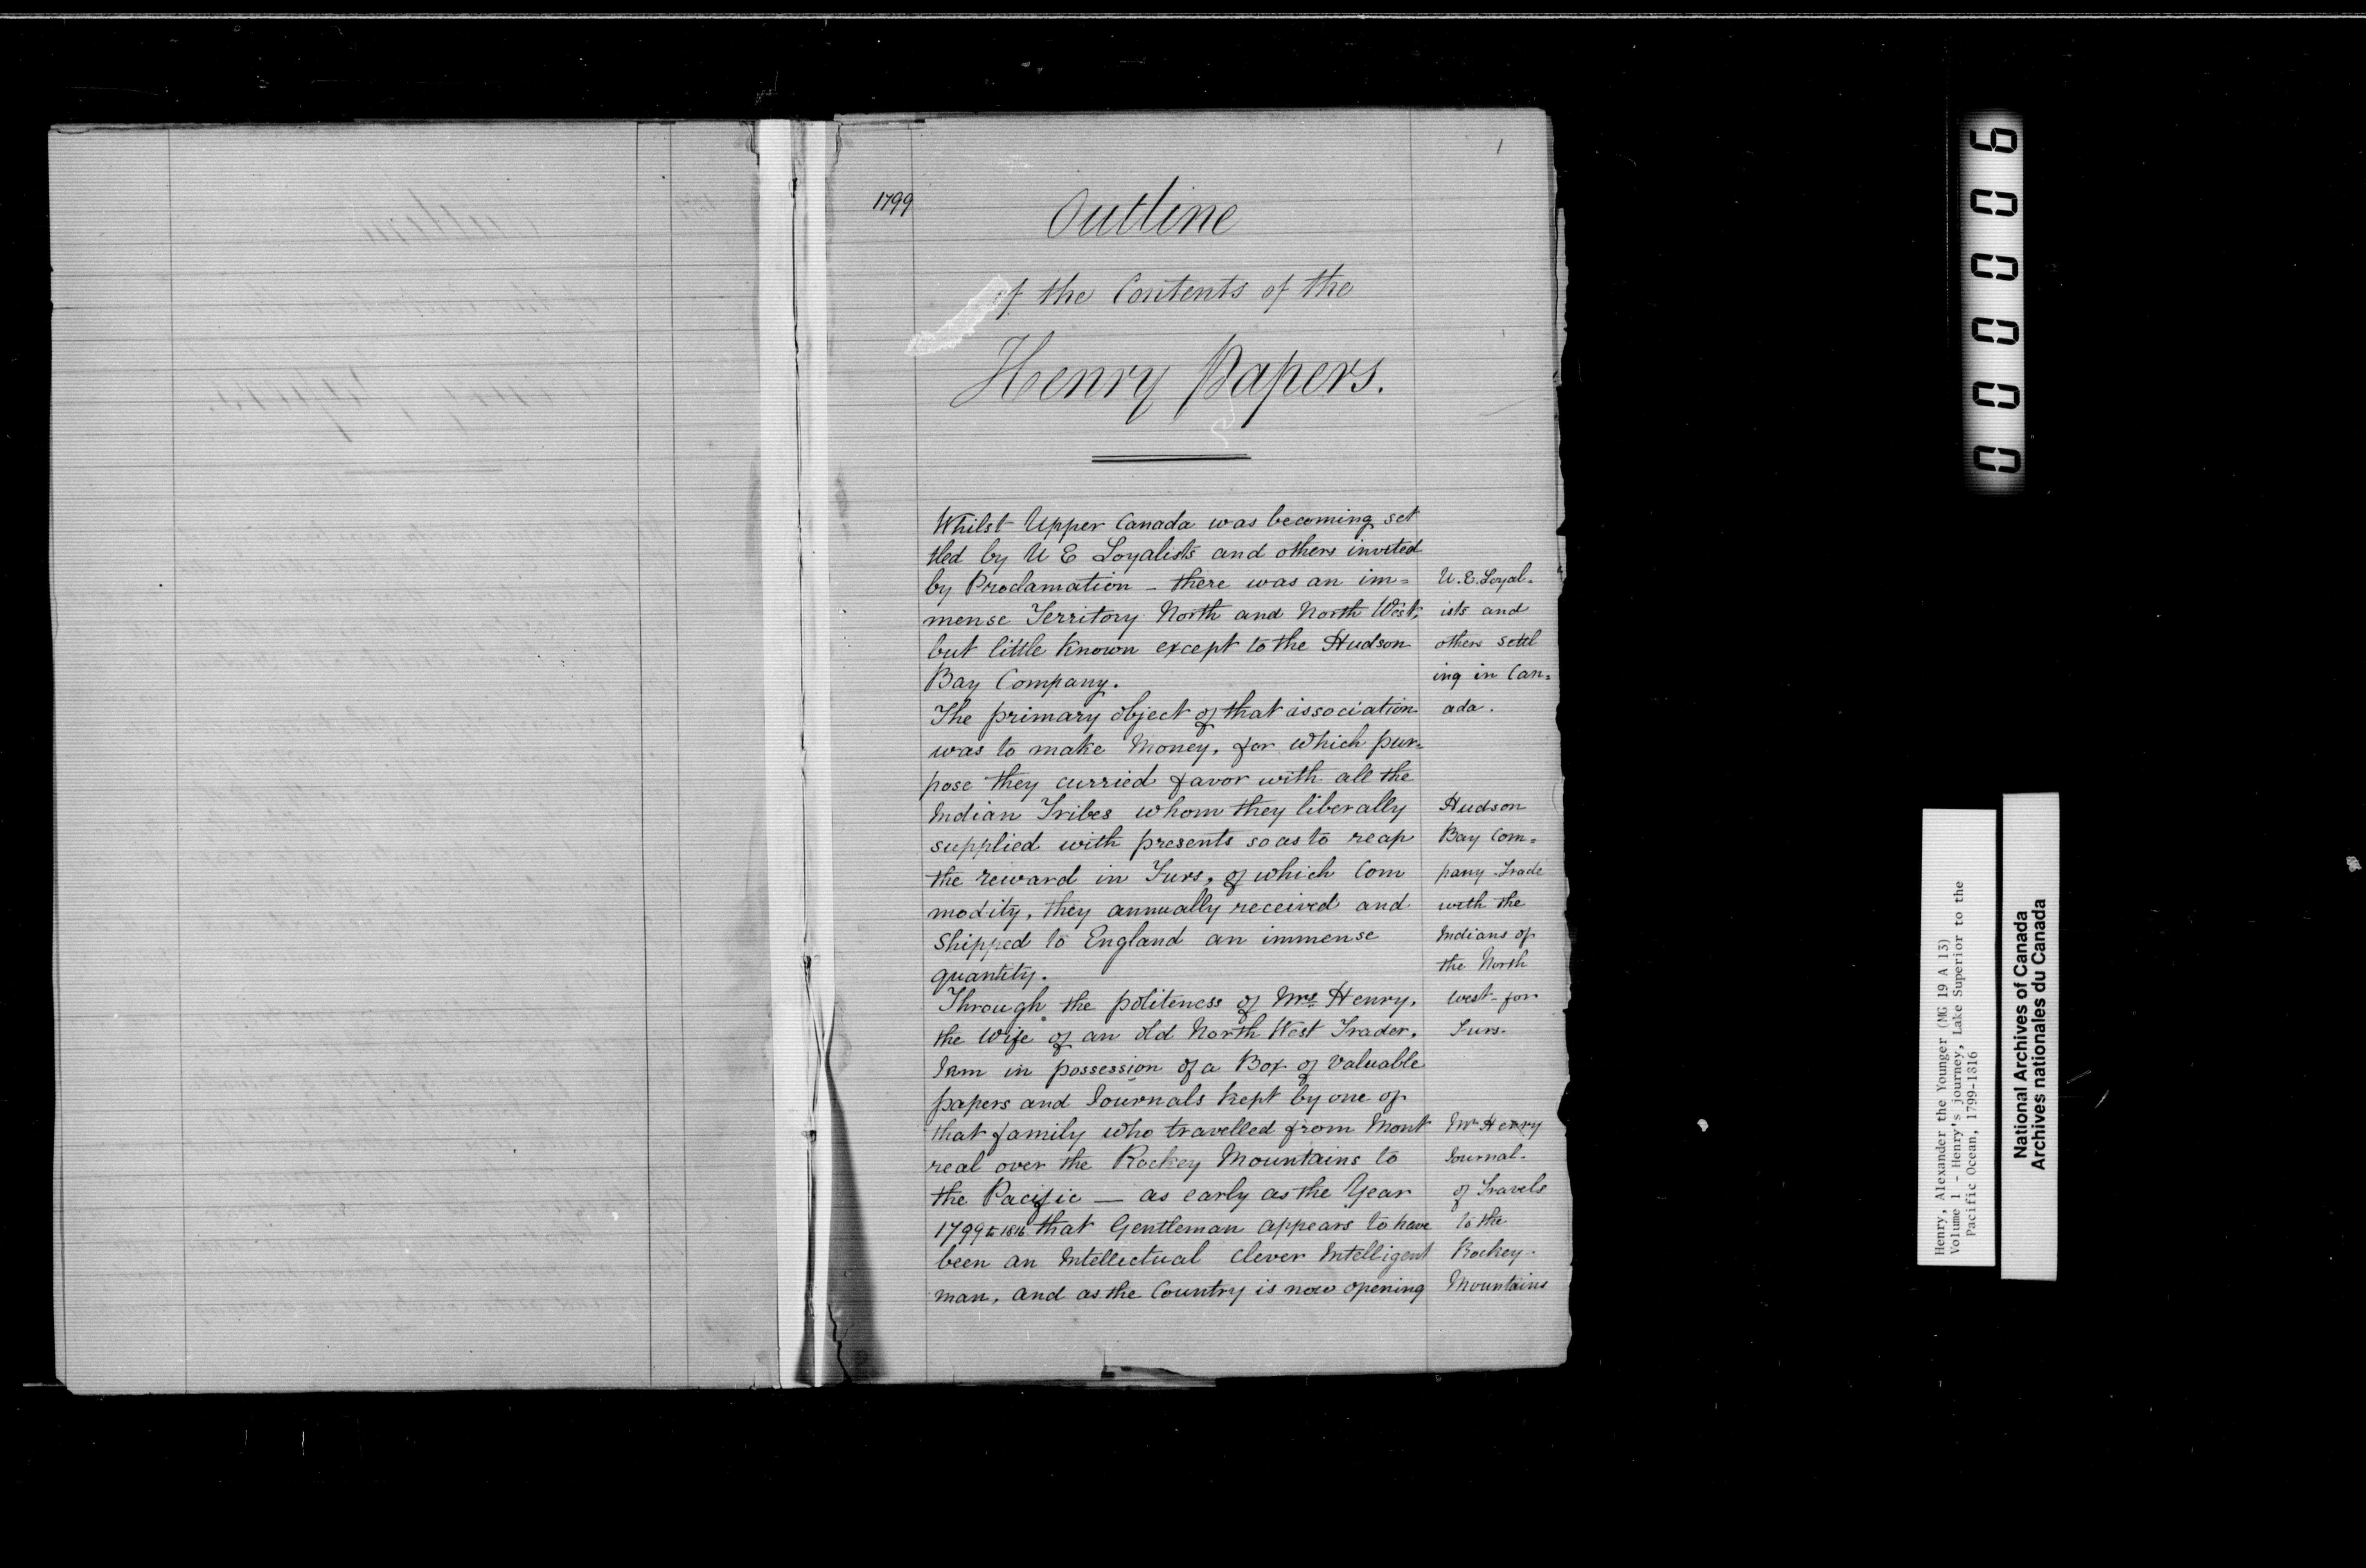 1
1799
Outline
of the Contents of the
Henry Papers.
Whilst Upper Canada was becoming set
tled by U E Loyalists and others invited
by Proclamation - there was an im=
mense Territory North and North West,
but little known except to the Hudson
Bay Company.
The primary object of that association
was to make Money, for which pur=
pose they curried favor with all the
Indian Tribes whom they liberally
supplied with presents so as to reap
the reward in Furs, of which Com
modity, they annually received and
Shipped to England an immense
quantity.
Through the politeness of Mrs Henry,
the Wife of an old North West Trader,
I am in possession of a Box of valuable
papers and Journals kept by one of
that family who travelled from Mont
real over the Rockey Mountains to
the Pacific — as early as the Year
1799 to 1816. that Gentleman appears to have
been an Intellectual Clever Intelligent
man, and as the Country is now opening
U.E. Loyal=
ists and
others settl
ing in Can=
ada.
Hudson
Bay Com=
pany Trade
with the
Indians of
the North
West - for
Furs.
Mr Henry
Journal.
of Travels
to the
Rockey-
Mountains
000006
Henry, Alexander the Younger (MG 19 A 13)
Volume 1 - Henry's journey, Lake Superior to the
Pacific Ocean, 1799-1816
National Archives of Canada
Archives nationales du Canada